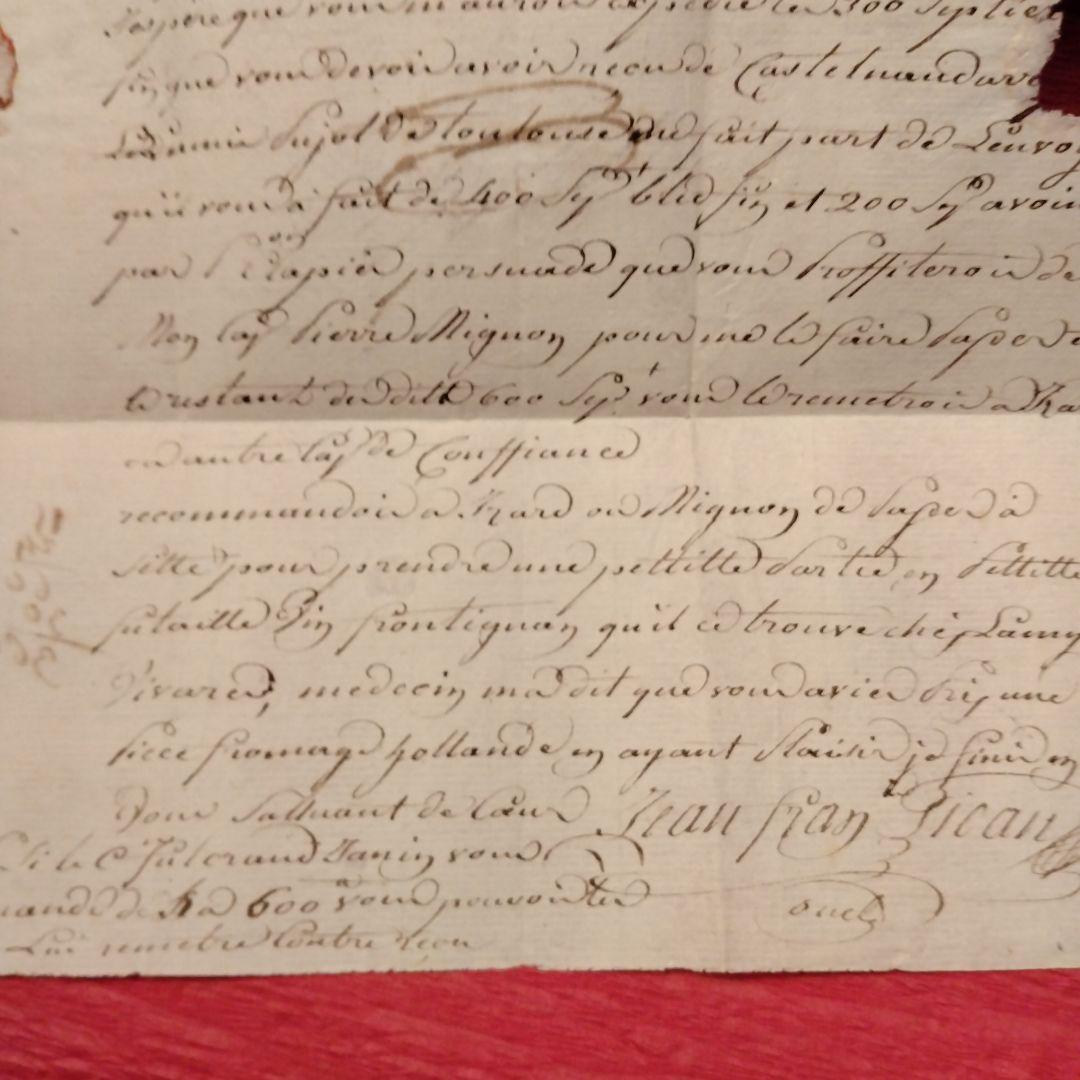 J'aspere que vous m'auroi expedié les 300 Septier
fin que vous devoi avoir recu de Castelnaudary
L'amis Pujol de toulouse me fait part de L'envoy
qu'il vous à fait de 400 Sep.t bled fin et 200 Sep avoin
par persuadé que vous Proffiteroi de
Mon Cap Pierre Mignon pour me le faire Passer e
le restant de dits 600 Sep.t vous le remetroi a
ou autre Cap de Confiance
recommandoi a ou Mignon de Passer à
Sette pour prendre une pettitte Partie en Pettitte
futaille Vin frontignan qu'il ce trouve chés Lamy
Vivares, medecin ma dit que vous avies Pris une
Piece fromage hollande en ayant Plaisir je finis en
Vous Salluant de Cœur Jean fran Vican
Si le C Fulcrand Janin vous
mande de 600 vous pouvoi les
Lui remetre Contre reçu